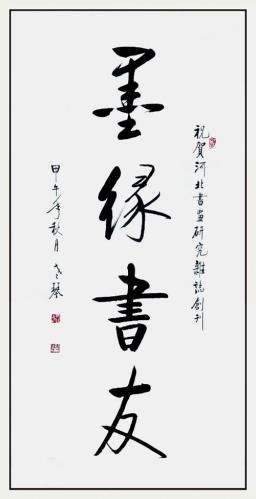 祝贺河北书画研究雜誌創刊
墨缘書友
甲午年秋月